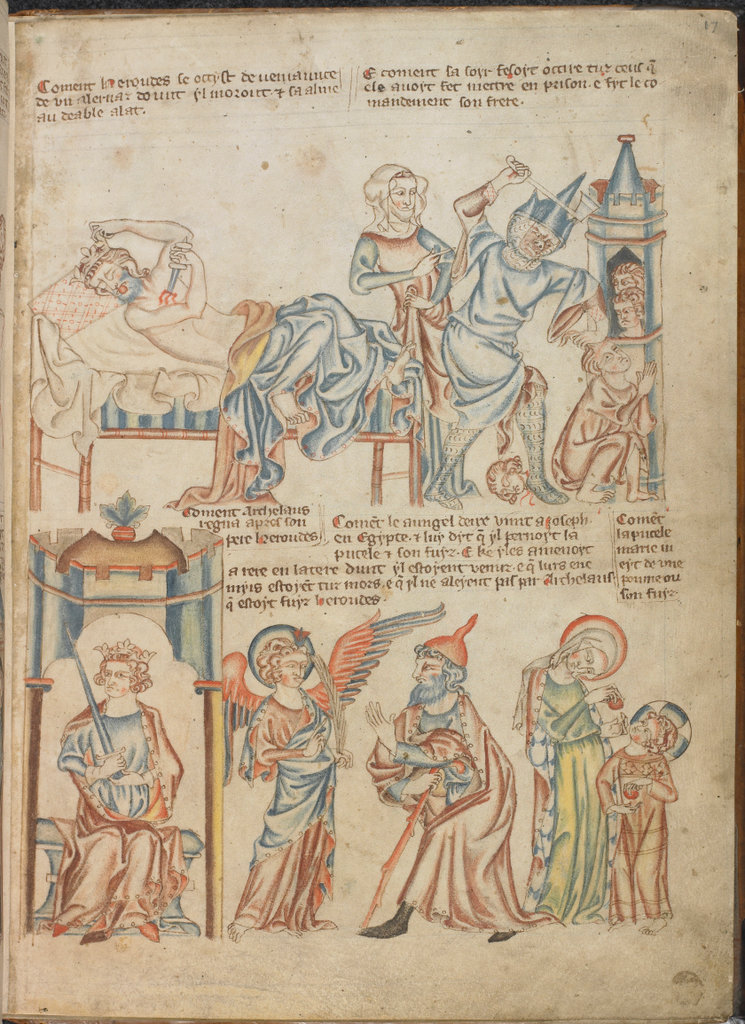 17
Coment Heroudes se occyst de veniaunce
de un alernaz dount yl morout & sa alme
au deable alat.
E coment sa soyr fesoyt occire tuz ceus q̄
ele avoyt fet mettre en prison. e fyt le co
mandement son frere.
Coment Archelaus
regna apres son
pere Heroudes
Comēt le aungel deire vint a Joseph
en Egypte. & luy dyt q̄ yl pernoyt la
pucele & son fuyz. E ke yles amenoyt
a rere en la tere dunt yl estoyent venuz. e q̄ lurs ene
mys estoyēt tuz mors. e q̄ yl ne aleyent pas par Archelaus
q̄ estoyt fuyz Heroudes.
Comēt
la pucele
marie iu
eyt de une
poume ou
son fuyz.